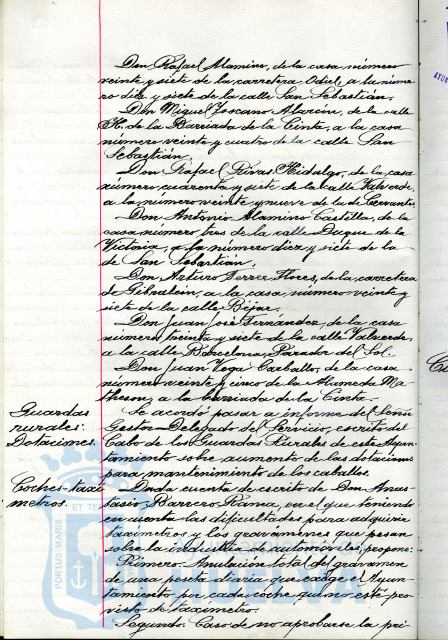 Don Rafael Alamino, de la casa número
veinte y siete de la carretera Odiel, a la núme-
ro diez y siete de la calle San Sebastián.
Don Miguel Toscano Alarcón, de la calle
H. de la Barriada de la Cinta, a la casa
número veinte y cuatro de la calle San
Sebastián.
Don Rafael Rivas Hidalgo, de la casa
número cuarenta y siete de la calle Valverde,
a la número veinte y nueve de la de Cervantes.
Don Antonio Alamino Castilla, de la
casa número tres de la calle Duque de la
Victoria, a la número diez y siete de la
de San Sebastián.
Don Arturo Ferrer Flores, de la carretera
de Gibraleón, a la casa número veinte y
siete de la calle Béjar.
Don Juan José Fernández, de la casa
número treinta y siete de la calle Valverde,
a la calle Barcelona, Parador del Sol.
Don Juan Vega Carballo, de la casa
número veinte y cinco de la Alameda Ma-
theson, a la barriada de la Cinta.
Guardas
rurales.
Dotaciones.
Se acordó pasar a informe del Señor
Gestor Delegado del Servicio, escrito del
Cabo de los Guardas Rurales de este Ayun-
tamiento sobre aumento de las dotaciones
para mantenimiento de los caballos.
Coches-taxi-
metros.
Dada cuenta de escrito de Don Anas-
tasio Barrero Rama, en el que teniendo
en cuenta las dificultades para adquirir
taxímetros y los gravámenes que pesan
sobre la industria de automóviles, propone:
Primero. Anulación total del gravamen
de una peseta diaria que exige el Ayun-
tamiento por cada coche que no esté pro-
visto de taxímetro.
Segundo. Caso de no aprobarse la pri-
PORTUS MARIS
ET TE